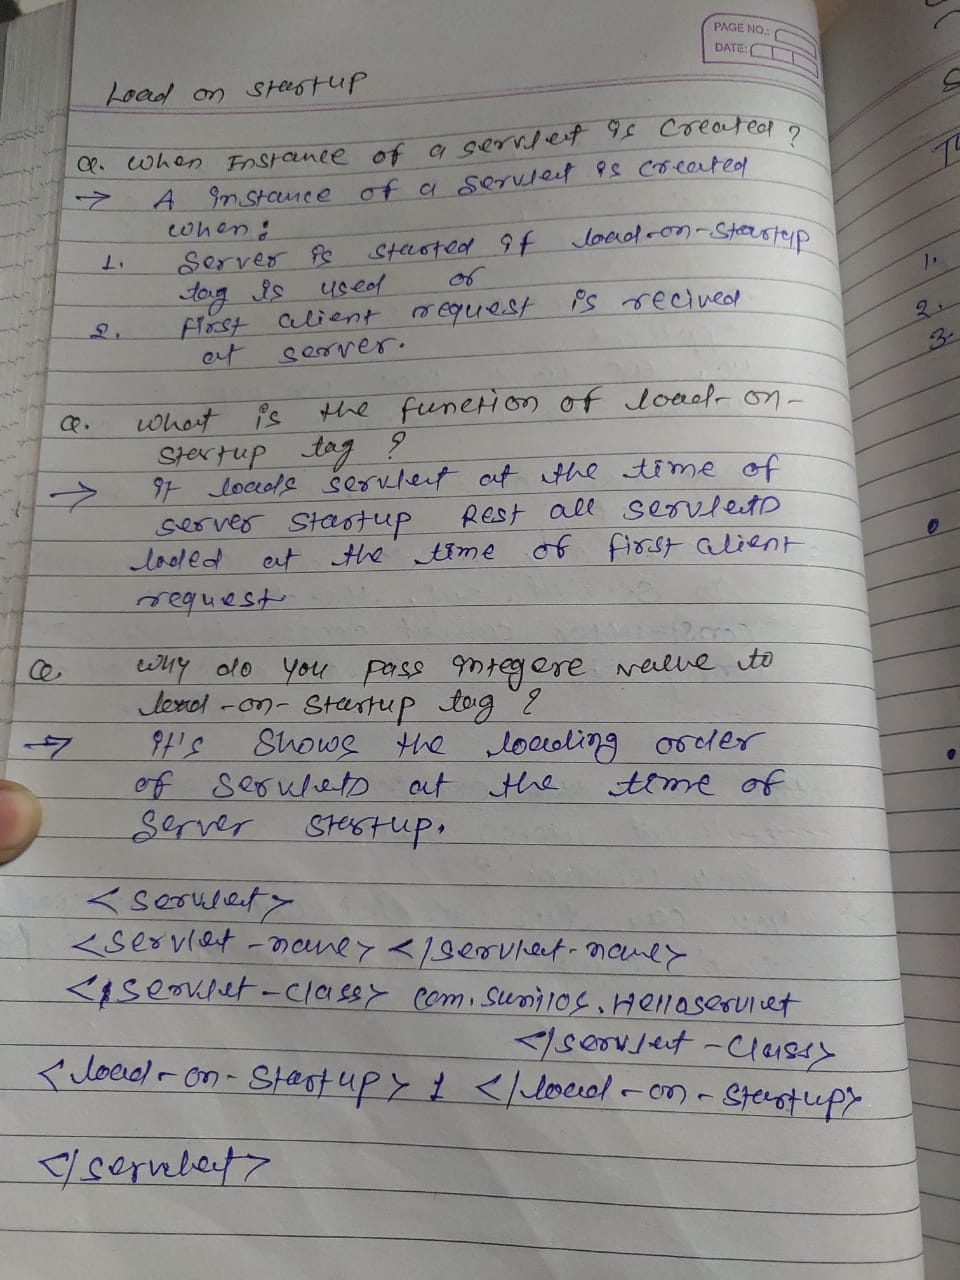 PAGE NO.:
DATE:
Load on startup
Q. when Instance of a servlet is created ?
→ A instance of a servlet is created
when :
1. Server is started if load-on-startup
tag is used or
2. first client request is recived
at server.
Q. what is the function of load-on-
startup tag ?
→ It loads servlet at the time of
server startup Rest all servlets
loded at the time of first client
request
Q. why do you pass integere value to
load-on-startup tag ?
→ It's shows the loading order
of servlets at the time of
Server startup.
<servlet>
<servlet-name></servlet-name>
<servlet-class> com.sunilos.Helloservlet
</servlet-class>
<load-on-startup> 1 </load-on-startup>
</servlet>
1.
2.
3.